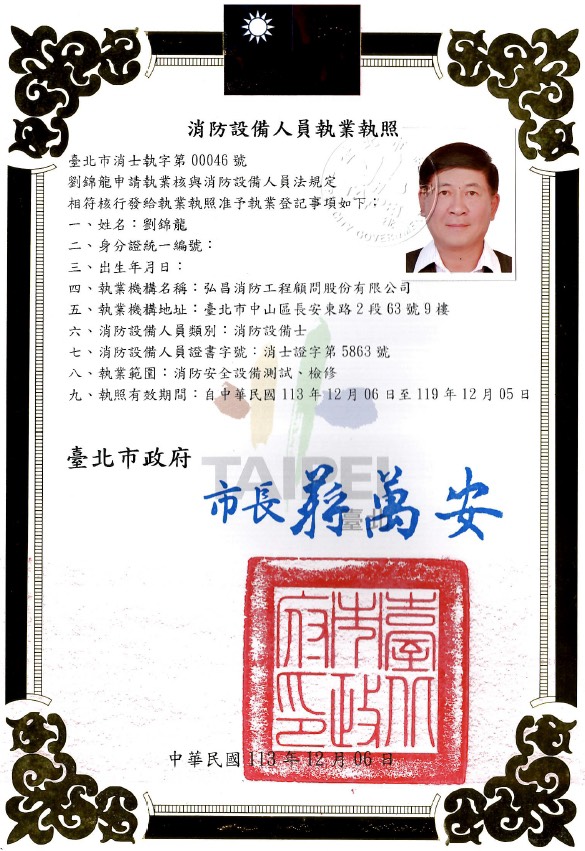 消防設備人員執業執照
臺北市消士執字第 00046 號
劉錦龍申請執業核與消防設備人員法規定
相符核行發給執業執照准予執業登記事項如下：
一、姓名：劉錦龍
二、身分證統一編號：
三、出生年月日：
四、執業機構名稱：弘昌消防工程顧問股份有限公司
五、執業機構地址：臺北市中山區長安東路2段63號9樓
六、消防設備人員類別：消防設備士
七、消防設備人員證書字號：消士證字第 5863 號
八、執業範圍：消防安全設備測試、檢修
九、執照有效期間：自中華民國 113 年 12 月 06 日至 119 年 12 月 05 日
臺北市政府
TAIPEI
臺北
市長 蔣萬安
臺北市政府印
中華民國 113 年 12 月 06 日